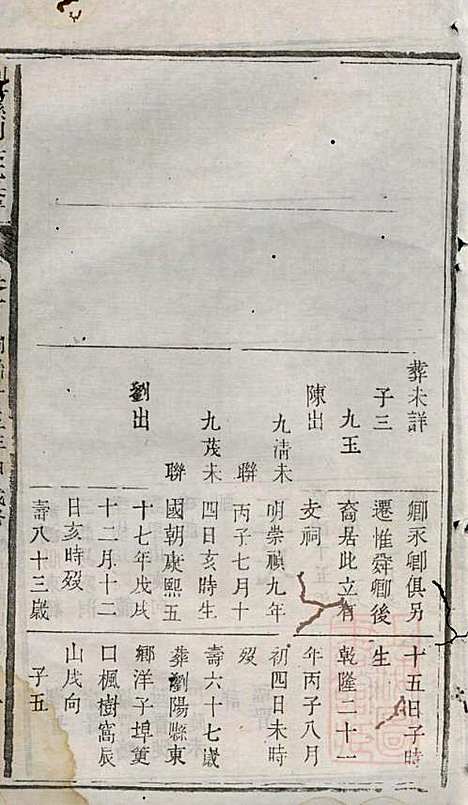 葬未詳
子三
九玉
陳出
九淸未
聯
九茂未
聯
劉出
卿永卿俱另
遷惟舜卿後
裔居此立有
支祠
明崇禎九年
丙子七月十
四日亥時生
國朝康熙五
十七年戊戌
十二月十二
日亥時殁
壽八十三歲
十五日子時
生
乾隆二十一
年丙子八月
初四日未時
殁
壽六十七歲
葬劉陽縣東
鄉洋子埠莫
口楓樹窩辰
山戌向
子五